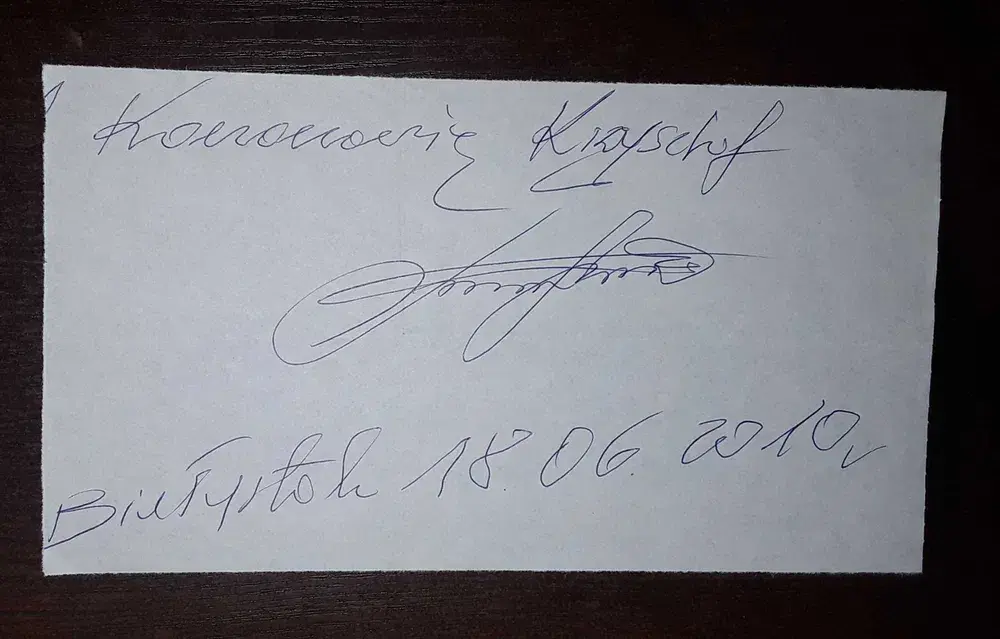 Kononowicz Krzysztof
Białystok 18.06.2010r